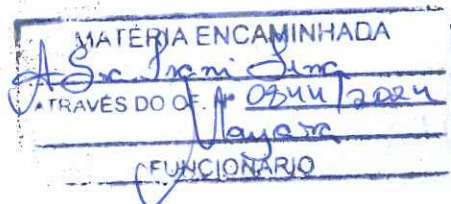 MATÉRIA ENCAMINHADA
A Sra Irani Lima
ATRAVÉS DO OF. Nº 0844/2024
Nayara
FUNCIONÁRIO